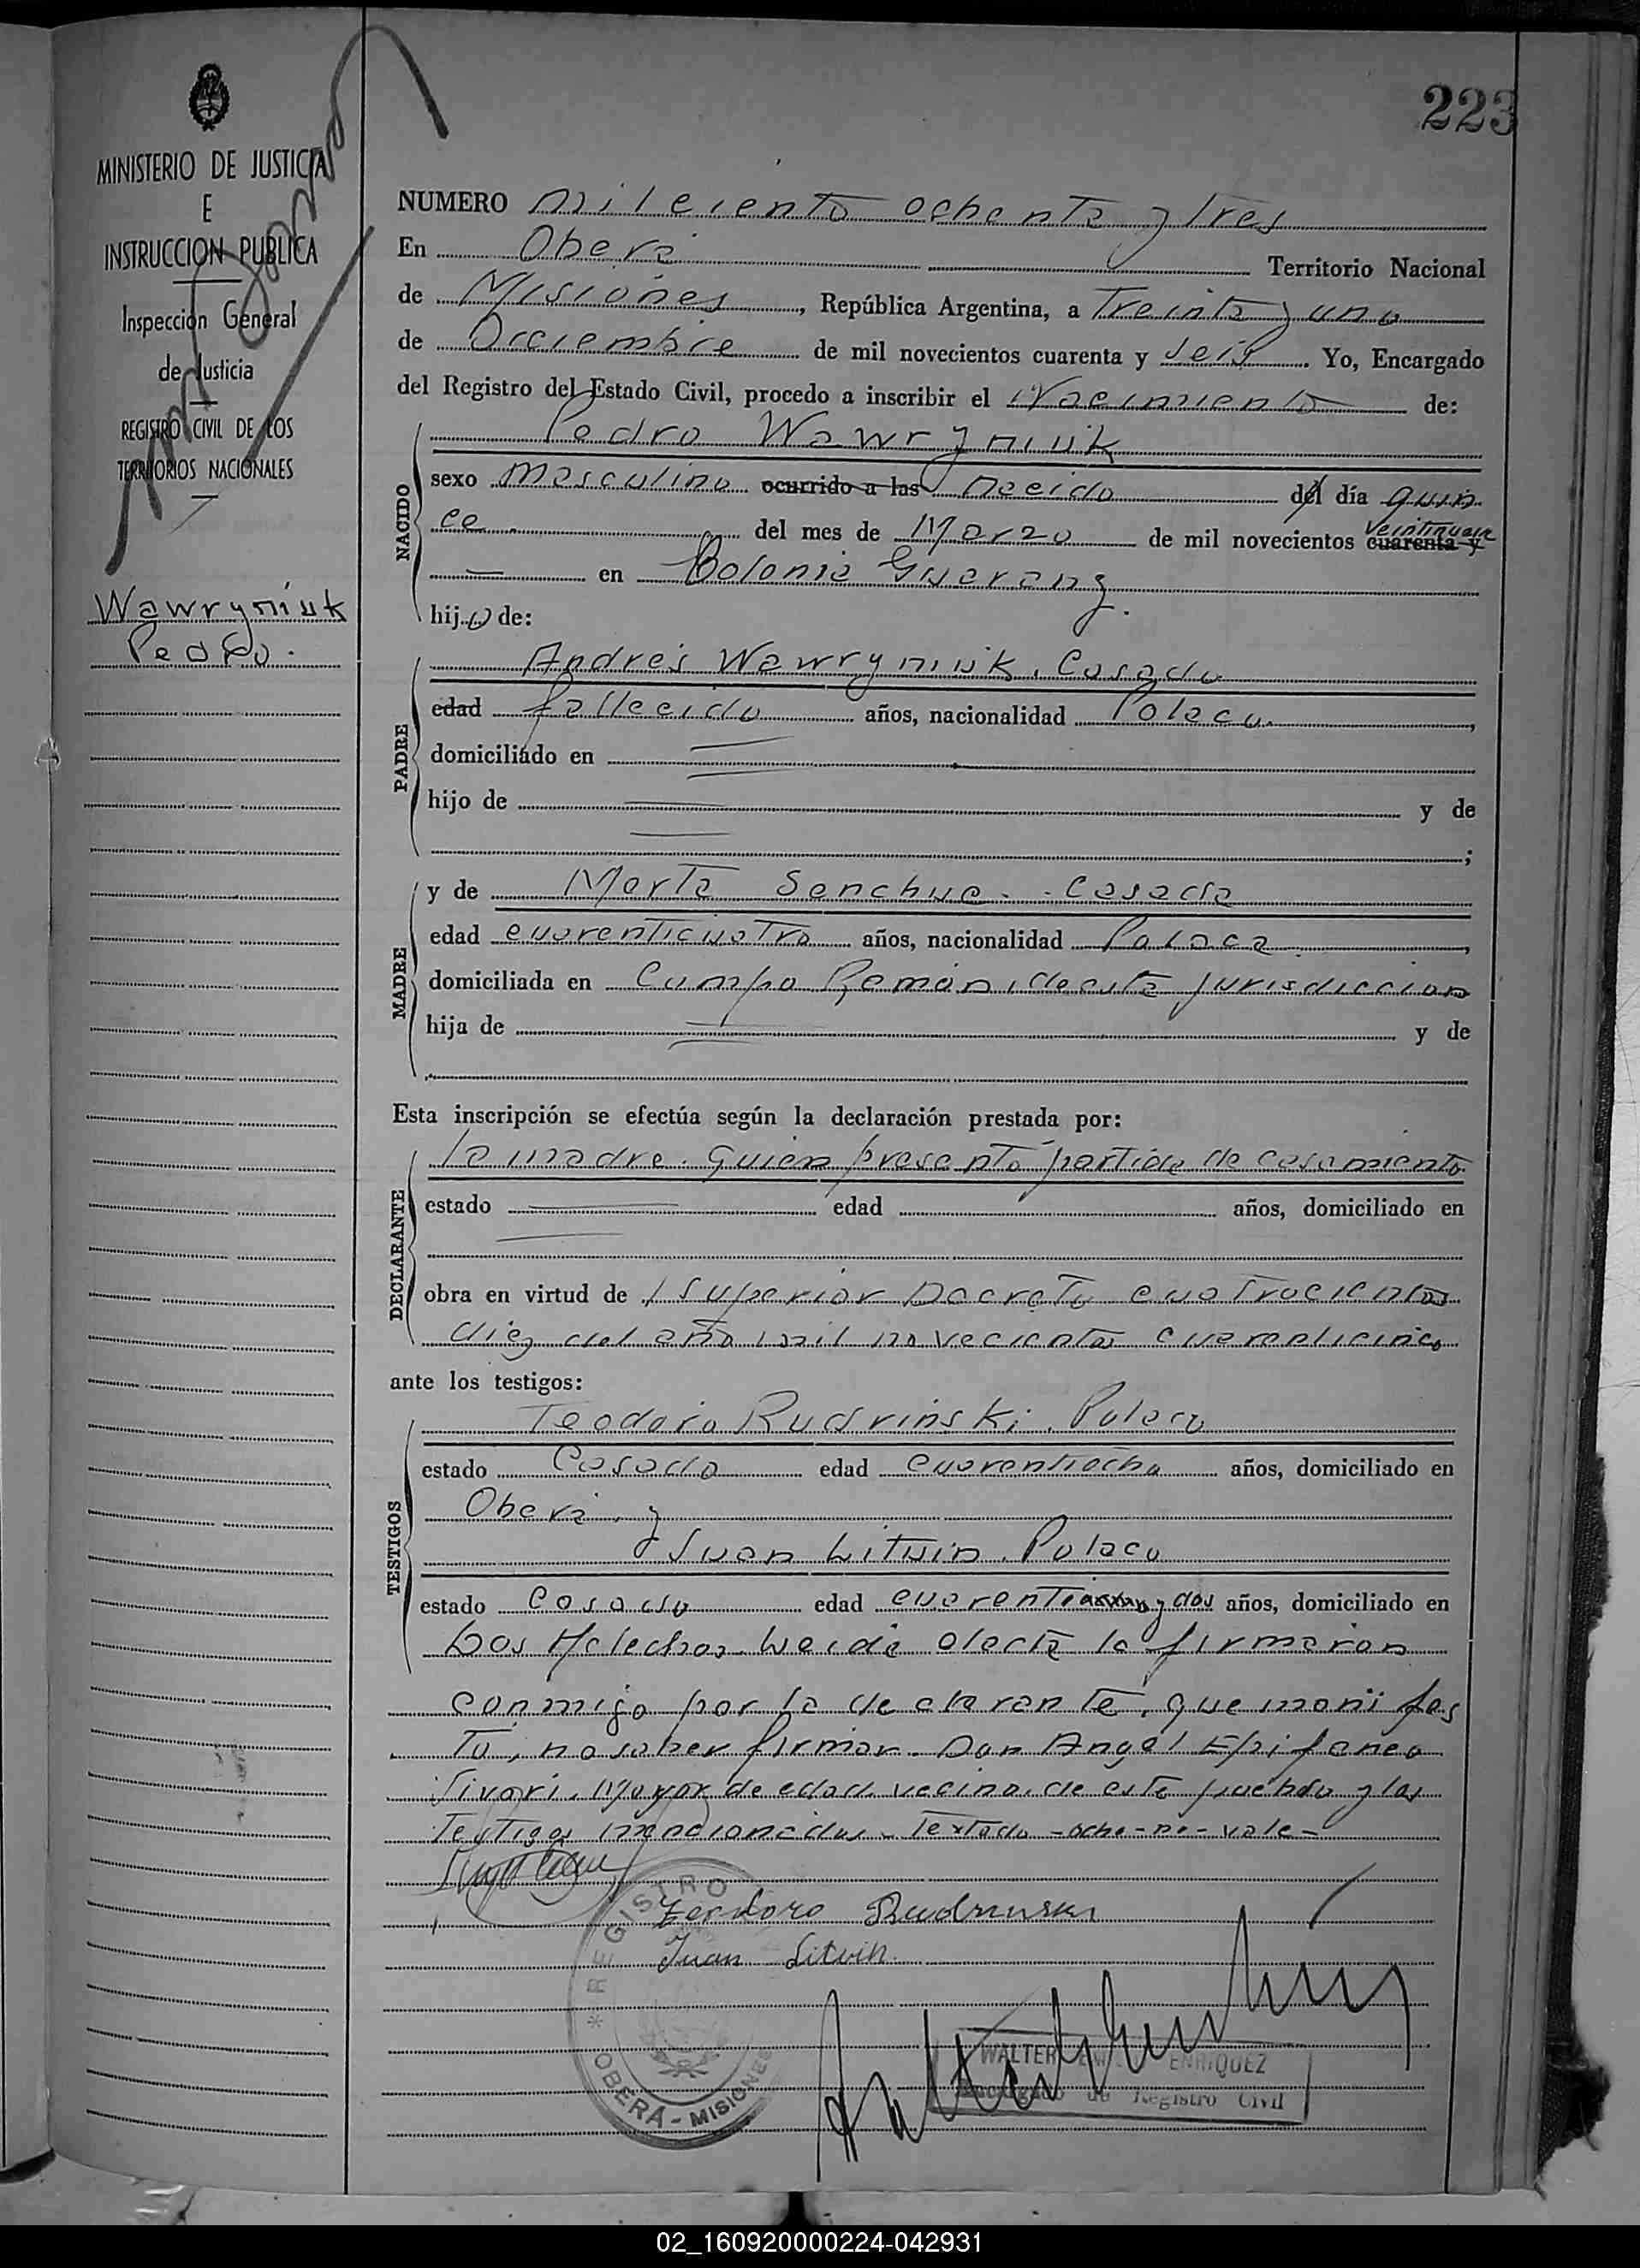 223
MINISTERIO DE JUSTICIA
E
INSTRUCCION PUBLICA
Inspección General
de Justicia
REGISTRO CIVIL DE LOS
TERRITORIOS NACIONALES
Wawryniuk
Pedro.
NUMERO mil ciento ochenta y tres
En Oberá Territorio Nacional
de Misiones, República Argentina, a Treinta y uno
de Diciembre de mil novecientos cuarenta y seis. Yo, Encargado
del Registro del Estado Civil, procedo a inscribir el Nacimiento de:
Pedro Wawryniuk
NACIDO
sexo masculino ocurrido a las Nacido del día quin
ce del mes de Marzo de mil novecientos veintinueve cuarenta y
en Colonia Guarany.
hijo de:
PADRE
Andrés Wawryniuk, Casado
edad fallecido años, nacionalidad Polaco.,
domiciliado en
hijo de y de
;
MADRE
y de Marta Senchue. Casada
edad cuarenticuatro años, nacionalidad Polaca,
domiciliada en Campo Ramón, de esta jurisdiccion
hija de y de
Esta inscripción se efectúa según la declaración prestada por:
DECLARANTE
la madre. Quien presentó partida de casamiento.
estado edad años, domiciliado en
obra en virtud de / Superior Decreto cuatrocientos
diez del año mil novecientos cuarenticinco
ante los testigos:
TESTIGOS
Teodoro Rudvinski. Polaco
estado Casado edad cuarentiocho años, domiciliado en
Oberá. y
Juan Litwin. Polaco
estado Casado edad cuarenti y dos años, domiciliado en
Los Helechos. Leida el acta la firmaron
conmigo por la declarante, que manifes
tó, no saber firmar. Don Angel Epifaneo
Sivori, Mayor de edad, vecino, de este pueblo y los
Testigos mencionados. Textado -ocho-no-vale-
Teodoro Rudnuski
Juan Litvin.
* REGISTRO
OBERÁ - MISIONES
WALTER ENRIQUEZ
Encargado de Registro Civil
02_160920000224-042931